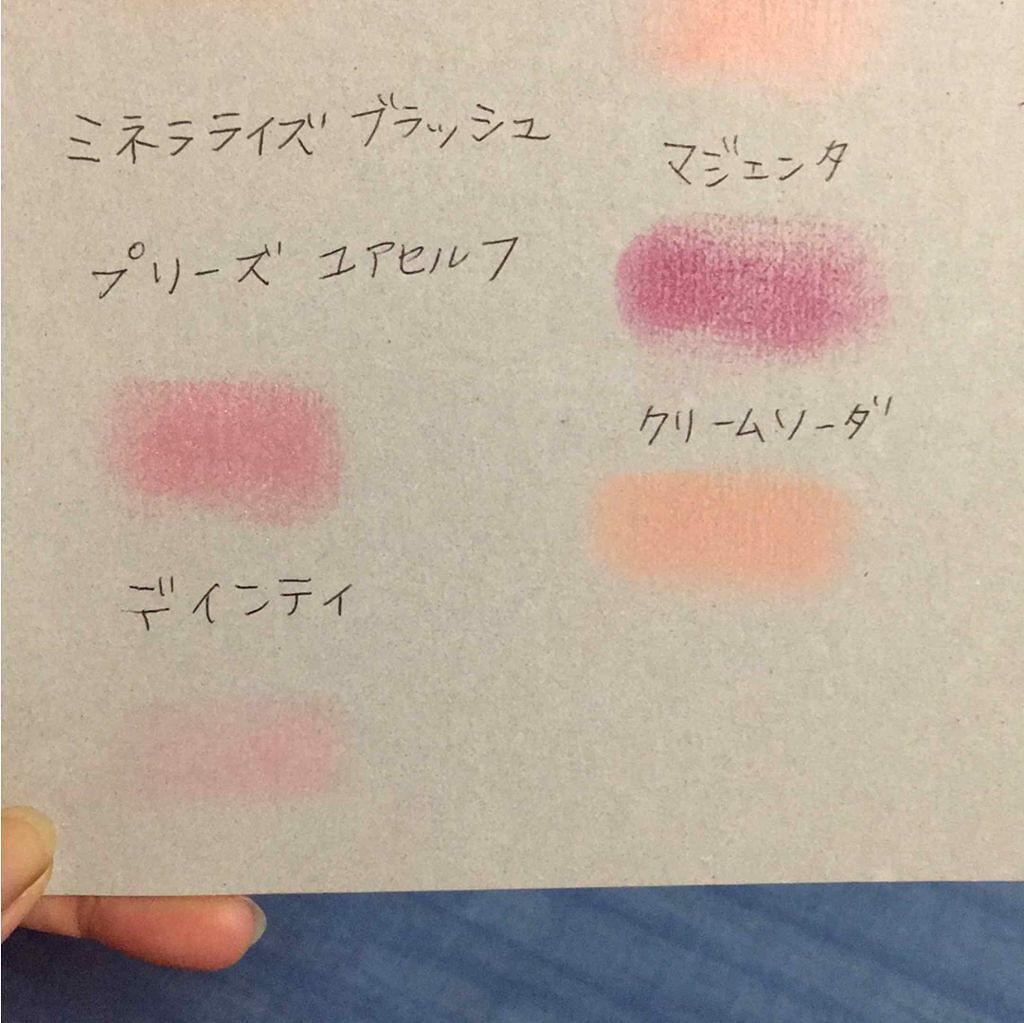 ミネラライズ ブラッシュ
プリーズ ユアセルフ
デインティ
マジェンタ
クリームソーダ